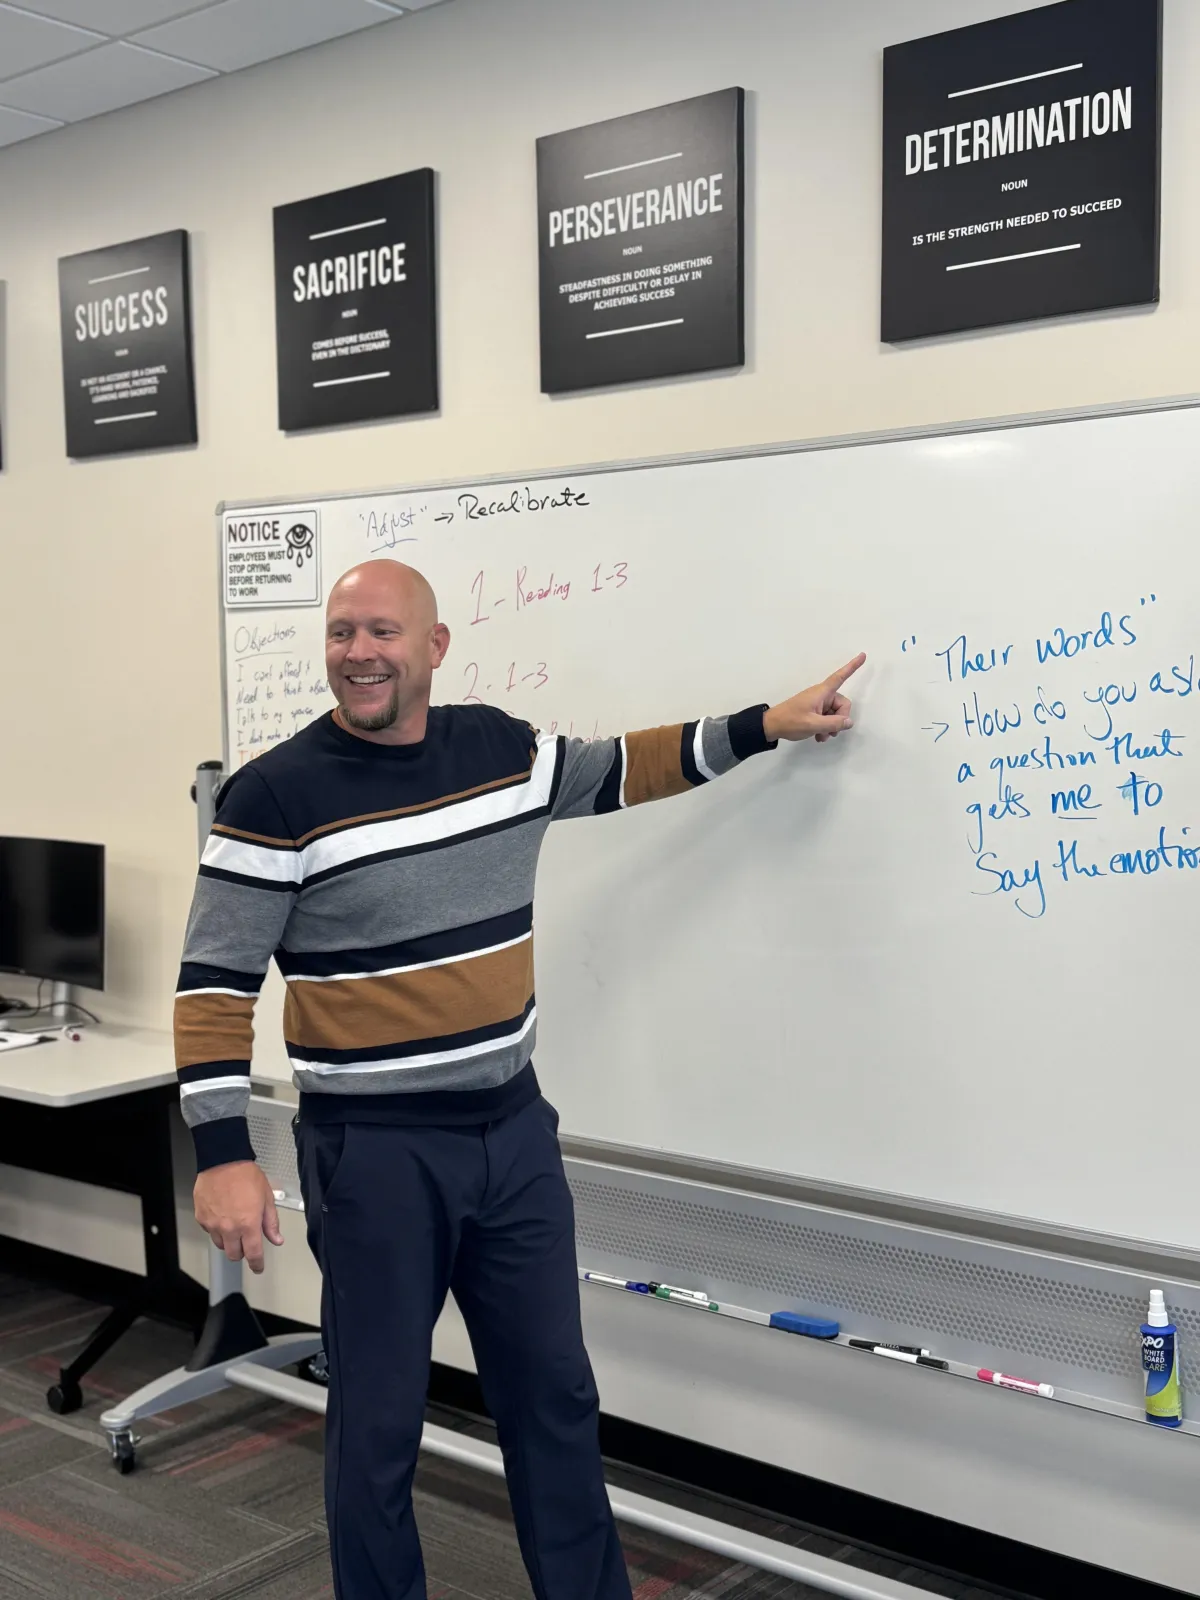 SUCCESS
NOUN
IS NOT AN ACCIDENT OR A CHANCE,
IT'S HARD WORK, PATIENCE,
LEARNING AND SACRIFICE
SACRIFICE
NOUN
COMES BEFORE SUCCESS,
EVEN IN THE DICTIONARY
PERSEVERANCE
NOUN
STEADFASTNESS IN DOING SOMETHING
DESPITE DIFFICULTY OR DELAY IN
ACHIEVING SUCCESS
DETERMINATION
NOUN
IS THE STRENGTH NEEDED TO SUCCEED
NOTICE
EMPLOYEES MUST
STOP CRYING
BEFORE RETURNING
TO WORK
"Adjust" → Recalibrate
1 - Reading 1-3
2 - 1-3
Objections
I cant afford
Need to think about
Talk to my spouse
I dont make
" Their words "
→ How do you ask
a question that
gets me to
Say the emotio
XPO
WHITE
BOARD
CARE